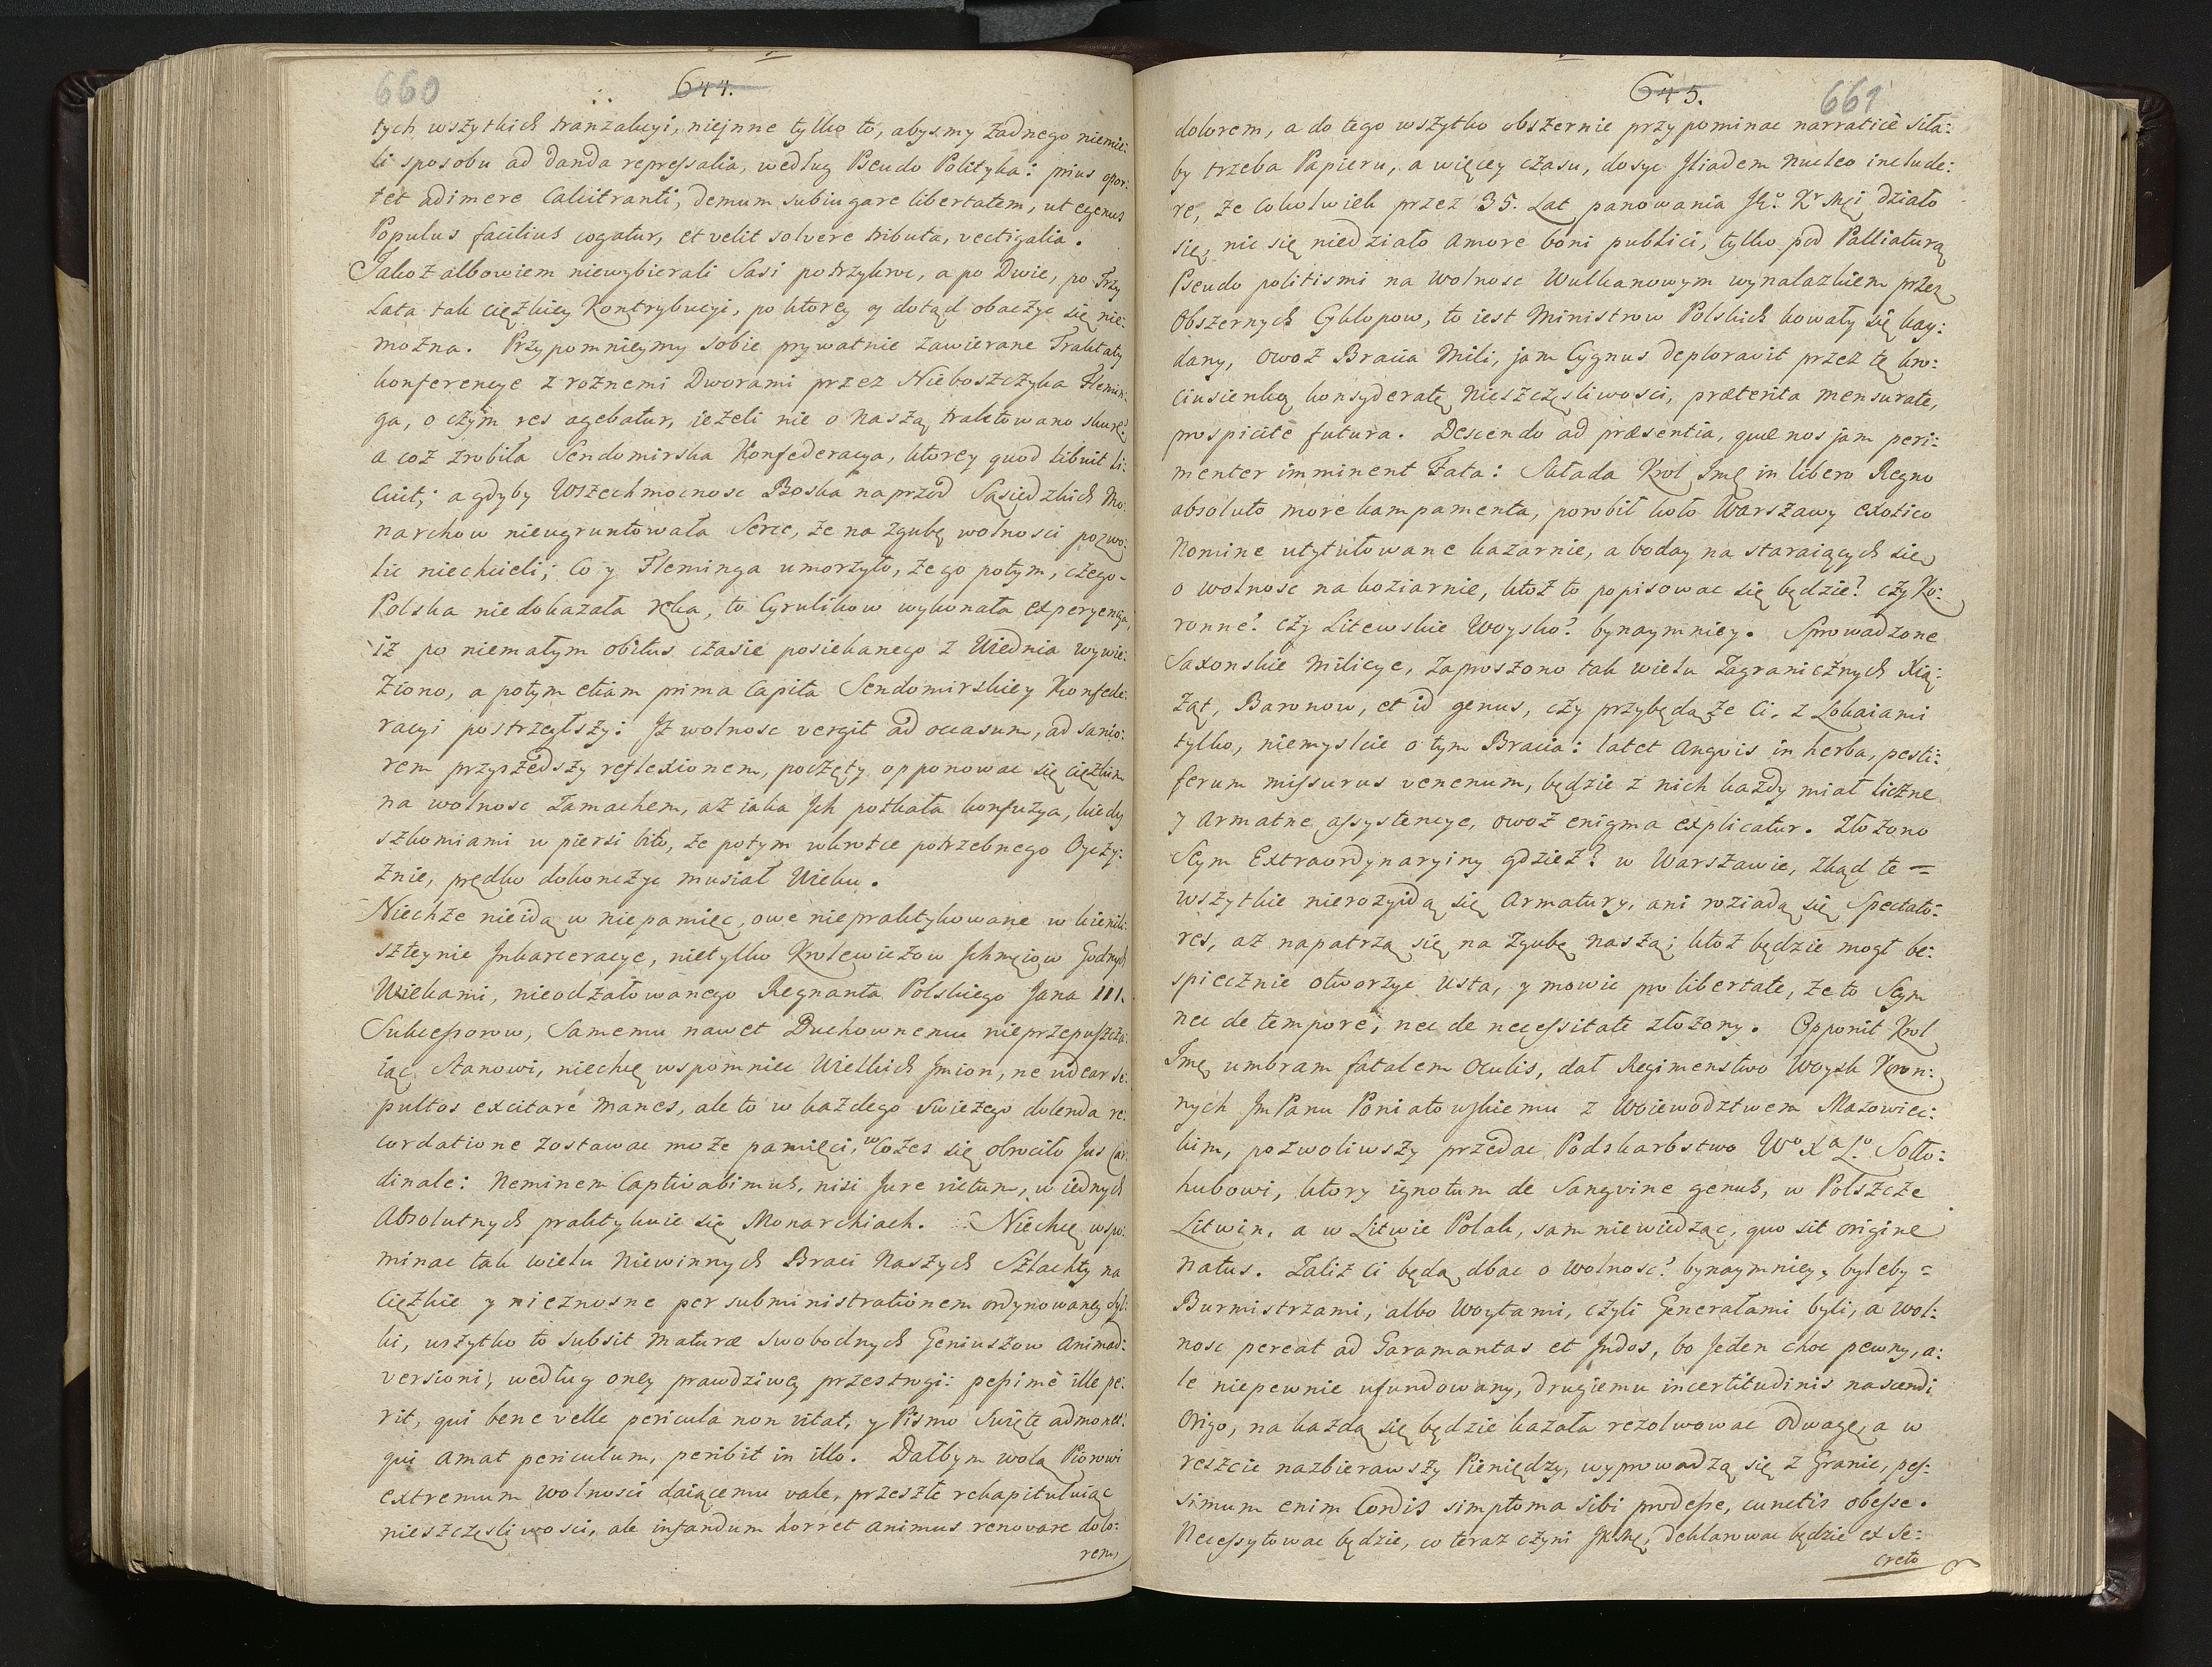 660
644.
tych wszytkich tranzakcyi, niejnne tylko to, abysmy żadnego niemie:
li sposobu ad danda repressalia, według Pseudo Polityka: prius opor:
tet adimere Calcitranti, demum subiugare libertatem, ut egenus
Populus facilius cogatur, et velit solvere tributa, vectigalia.
Jakoż albowiem niewybierali Sasi potrzykroc, a po Dwie, po Trzy
Lata tak cięzkiey Kontrybucyi, po ktorey y dotąd obaczyc się nie:
mozna. Przypomnieymy sobie prywatnie zawierane Traktaty
konferencye z roznemi Dworami przez Nieboszczyka Flemin:
ga, o czym res agebatur, ieżeli nie o naszą traktowano skurę,
a coż zrobiła Sendomirska Konfederacya, ktorey quod libuit li:
cuit; a gdyby Wszechmocnosc Boska naprzod Sąsiedzkich Mo:
narchow nieugruntowała Serce, że na zgubę wolnosci pozwo:
lic niechcieli; Co y Fleminga umorzyło, że go potym, czego-
Polska niedokazała ręka, to Cyrulikow wykonała experyencya,
iż po niemałym obitus czasie posiekanego z Wiednia wywie:
ziono, a potym etiam prima Capita Sendomirskiey Konfede:
racyi postrzegłszy: Jż wolnosc vergit ad occasum, ad sanio:
rem przyszedszy reflexionem, poczęły opponowac się cięzkim
na wolnosc zamachem, aż iaka Jch potkała konfuzya, kiedy
szkomiami w piersi bito, że potym wkrotce potrzebnego Oyczy:
znie, prędko dokonczyc musiał Wieku.
Niechże nieidą w niepamięc, owe niepraktykowane w kienik:
szteynie Jnkarceracye, nietylko Krolewiczow Jchmciow Godnych
Wiekami, nieodżałowanego Regnanta Polskiego Jana III.
Sukcessorow, Samemu nawet Duchownemu nieprzepuszcza:
iąc Stanowi, niechcę wspomniec Wielkich Jmion, ne videar se:
pultos excitare manes, ale to w każdego swieżego dolenda re:
cordatione zostawac może pamięci, w Cożes się obrociło Jus Car:
dinale: Neminem Captivabimus, nisi Jure victum, w iednych
Absolutnych praktykuie się Monarchiach. Niechcę wspo:
minac tak wielu niewinnych Braci naszych Szlachty na
Cięzkie y nieznosne per subministrationem ordynowaney dyl:
ki, wszytko to subsit maturæ swobodnych Geniuszow animad:
versioni, według oney prawdziwey przestrogi: pessimè ille pe:
rit, qui bene velle pericula non vitat, y Pismo Swięte admonet:
qui amat periculum, peribit in illo. Dałbym wolą Piorowi
extremum wolnosci daiącemu vale, przeszłe rekapituluiąc
nieszczęsliwosci, ale infandum horret animus renovare dolo:
rem,
645.
661
dolorem, a do tego wszytko obszernie przypominac narrativè siła:
by trzeba Papieru, a więcey czasu, dosyc Jliadem nucleo include:
re, że cokolwiek przez 35. Lat panowania JKo. Kr Mci działo
się, nic się niedziało amore boni publici, tylko pod Palliaturą
Pseudo politismi na wolnosc Wulkanowym wynalazkiem przez
Obszernych Cyklopow, to iest Ministrow Polskich kowały się kay:
dany, owoż Bracia Mili, jam Cygnus deploravit przez tę kro:
ciusienką konsyderatę nieszczęsliwosci, præterita mensurate,
prospicite futura. Descendo ad præsentia, quæ nos jam peri:
menter imminent Fata: Składa Krol Jmę in libero Regno
absoluto more kampamenta, porobił koło Warszawy exotico
Nomine utytułowane kazarnie, a boday na staraiących się
o wolnosc na koziarnie, ktoż to popisowac się będzie? czy Ko:
ronne? czy Litewskie Woysko? bynaymniey. Sprowadzone
Saxonskie milicye, zaproszono tak wielu Zagranicznych Xią:
żąt, Baronow, et id genus, czy przybędą że ci, z Lokaiami
tylko, niemyslcie o tym Bracia: latet anguis in herba, pesti:
ferum missurus venenum, będzie z nich każdy miał liczne
y armatne assystencye, owoż enigma explicatur. Złożono
Seym Extraordynaryiny gdzież? w Warszawie, zkąd te =
wszytkie nierozyidą się armatury, ani roziadą się Spectato:
res, aż napatrzą się na zgubę naszą; ktoż będzie mogł be:
spiecznie otworzyc usta, y mowic pro libertate, że to Seym
nec de tempore, nec de necessitate złożony. Opponit Krol
Jmę umbram fatalem oculis, dał Regimenstwo Woysk Koron:
nych JmPanu Poniatowskiemu z Woiewodztwem Mazowiec:
kim, pozwoliwszy przedac Podskarbstwo Wo Xa Lo. Sołło:
hubowi, ktory ignotum de Sangvine genus, w Polszcze
Litwin, a w Litwie Polak, sam niewiedząc, quo sit origine
natus. Zaliż ci będą dbac o wolnosc? bynaymniey, byleby =
Burmistrzami, albo Woytami, czyli Generałami byli, a wol:
nosc pereat ad Garamantas et Jndos, bo Jeden choc pewny, a:
le niepewnie ufundowany, drugiemu incertitudinis nascendi
origo, na każdą się będzie kazała rezolwowac odwagę, a w
reszcie nazbierawszy Pieniędzy, wyprowadzą się z Granic, pes:
simum enim Cordis simptoma sibi prodesse, cunctis obesse.
Necessytowac będzie, co teraz czyni JKMć, deklarowac będzie ex se:
creto